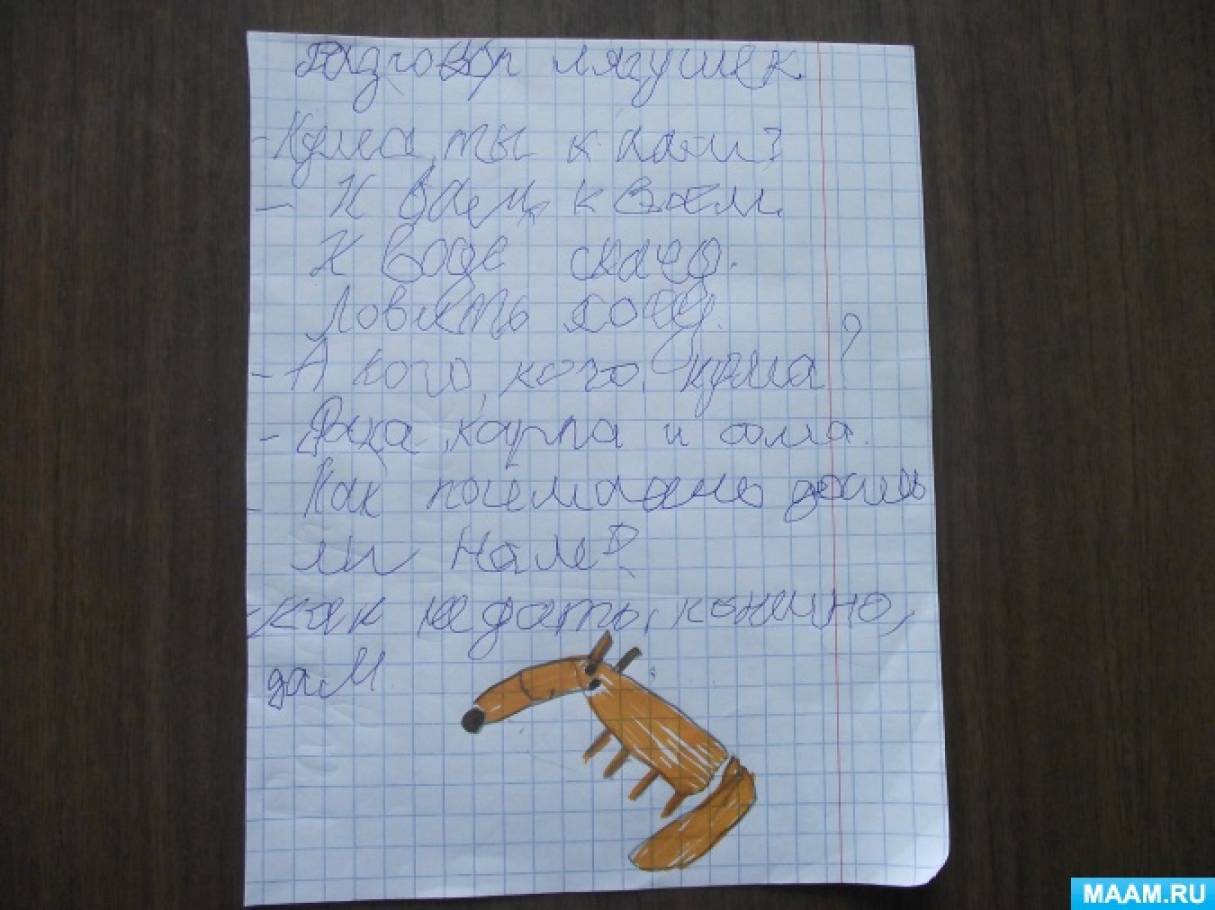 Разговор лягушек
- Кума, ты к нам?
- К вам, к вам.
К воде скачу.
Ловить хочу.
- А кого, кого, кума?
- Рака, карпа и сома.
- Как поймаешь дашь
ли нам?
- как не дать, конечно,
дам.
MAAM.RU